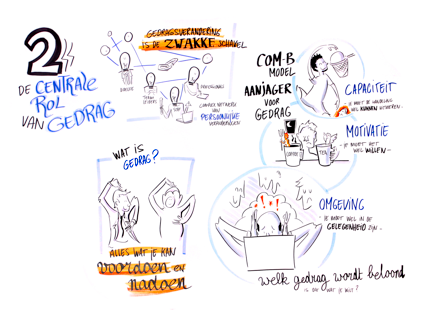 2
DE CENTRALE
ROL
VAN GEDRAG
GEDRAGSVERANDERING
IS DE ZWAKKE SCHAKEL
DIRECTIE
TEAM
LEIDERS
COMPLEX NETWERK
VAN
PERSOONLIJKE
VERANDERINGEN
WAT IS
GEDRAG?
ALLES WAT JE KAN
voordoen en
nadoen
COM-B
MODEL
AANJAGER
VOOR
GEDRAG
CAPACITEIT
JE MOET DE HANDELING
WEL KUNNEN UITVOEREN..
MOTIVATIE
JE MOET HET
WEL WILLEN..
COFFEE
TEA
OMGEVING
JE MOET WEL IN DE
GELEGENHEID ZIJN..
welk gedrag wordt beloond
IS DAT WAT JE WILT?